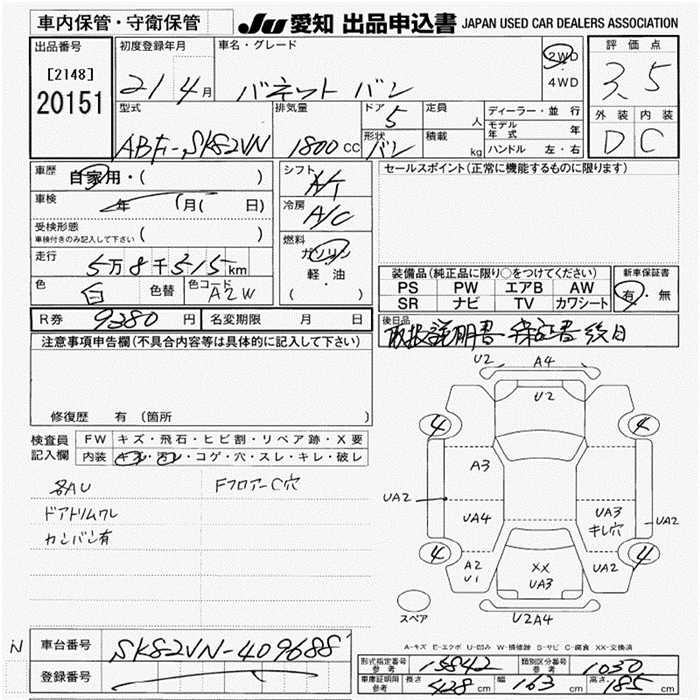 車内保管・守衛保管
JU 愛知 出品申込書 JAPAN USED CAR DEALERS ASSOCIATION
出品番号
[2148]
20151
初度登録年月
21 4月
車名・グレード
バネット バン
2WD
・
4WD
評価点
3.5
外装 内装
D C
型式
ABF-SK82VN
排気量
1800 CC
ドア
5
形状
バン
定員
人
積載
kg
ディーラー・並行
モデル年式 年
ハンドル 左・右
車歴
自家用・( )
車検
年 月( 日)
受検形態
車検付きのみ記入して下さい ( )
走行
5万8千315km
色
白 色替
色コード
A2W
シフト
A/T
冷房
A/C
燃料
ガソリン
軽・油
( )
セールスポイント(正常に機能するものに限ります)
装備品(純正品に限り○をつけてください)
PS PW エアB AW
SR ナビ TV カワシート
新車保証書
有・無
R券 9380円
名変期限 月 日
後日品
取扱説明書・保証書 後日
注意事項申告欄(不具合内容等は具体的に記入して下さい)
修復歴 有(箇所 )
検査員
記入欄
FW キズ・飛石・ヒビ割・リペア跡・X要
内装 キズ・汚レ・コゲ・穴・スレ・キレ・破レ
各AU
Fフロアーc穴
ドアトリムワレ
カンバン有
U2 A4
U2
4 4
A3
UA2
UA4
UA3
キレ穴
UA2
4 4
A2
U1
XX
UA3
UA2
スペア
U2A4
A-キズ E-エクボ U-凹み W-補修跡 S-サビ C-腐食 XX-交換済
N
車台番号 SK82VN-409688
登録番号
型式指定番号
参考
15842
類別区分番号
参考
1030
車庫証明用
参考
長さ 428 cm 幅 163 cm 高さ 185 cm